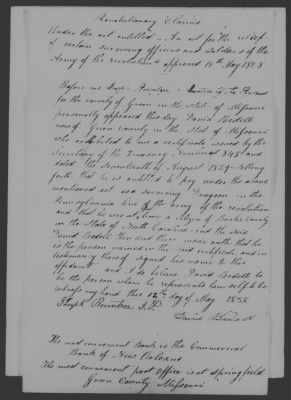 Revolutionary Claims
Under the act entitled "An act for the relief
of certain surviving officers and soldiers of the
Army of the revolution" approved 15th May 1828
Before me Joseph Rountree a Justice of the Peace
for the county of Green in the State of Missouri
personally appeared this day David Bedell
now of Green county in the State of Missouri
who exhibited to me a certificate issued by the
Secretary of the Treasury Numbered 848 and
dated the Seventeenth of August 1829 Setting
forth that he is entitled to pay under the above
mentioned act as a surviving Dragoon in the
Pennsylvania line of the army of the revolution
and that he was at a time a citizen of Burke County
in the State of North Carolina and the said
David Bedell then and there made oath that he
is the person named in the said certificate and in
testimony thereof signed his name to this
affidavit and I do believe David Bedell to
be the person whom he represents himself to be
witness my hand this 12th day of May 1835
Joseph Rountree J.P.
David Bedell
The most convenient Bank is the Commercial
Bank of New Orleans
The most convenient post office is at Springfield
Green County Missouri